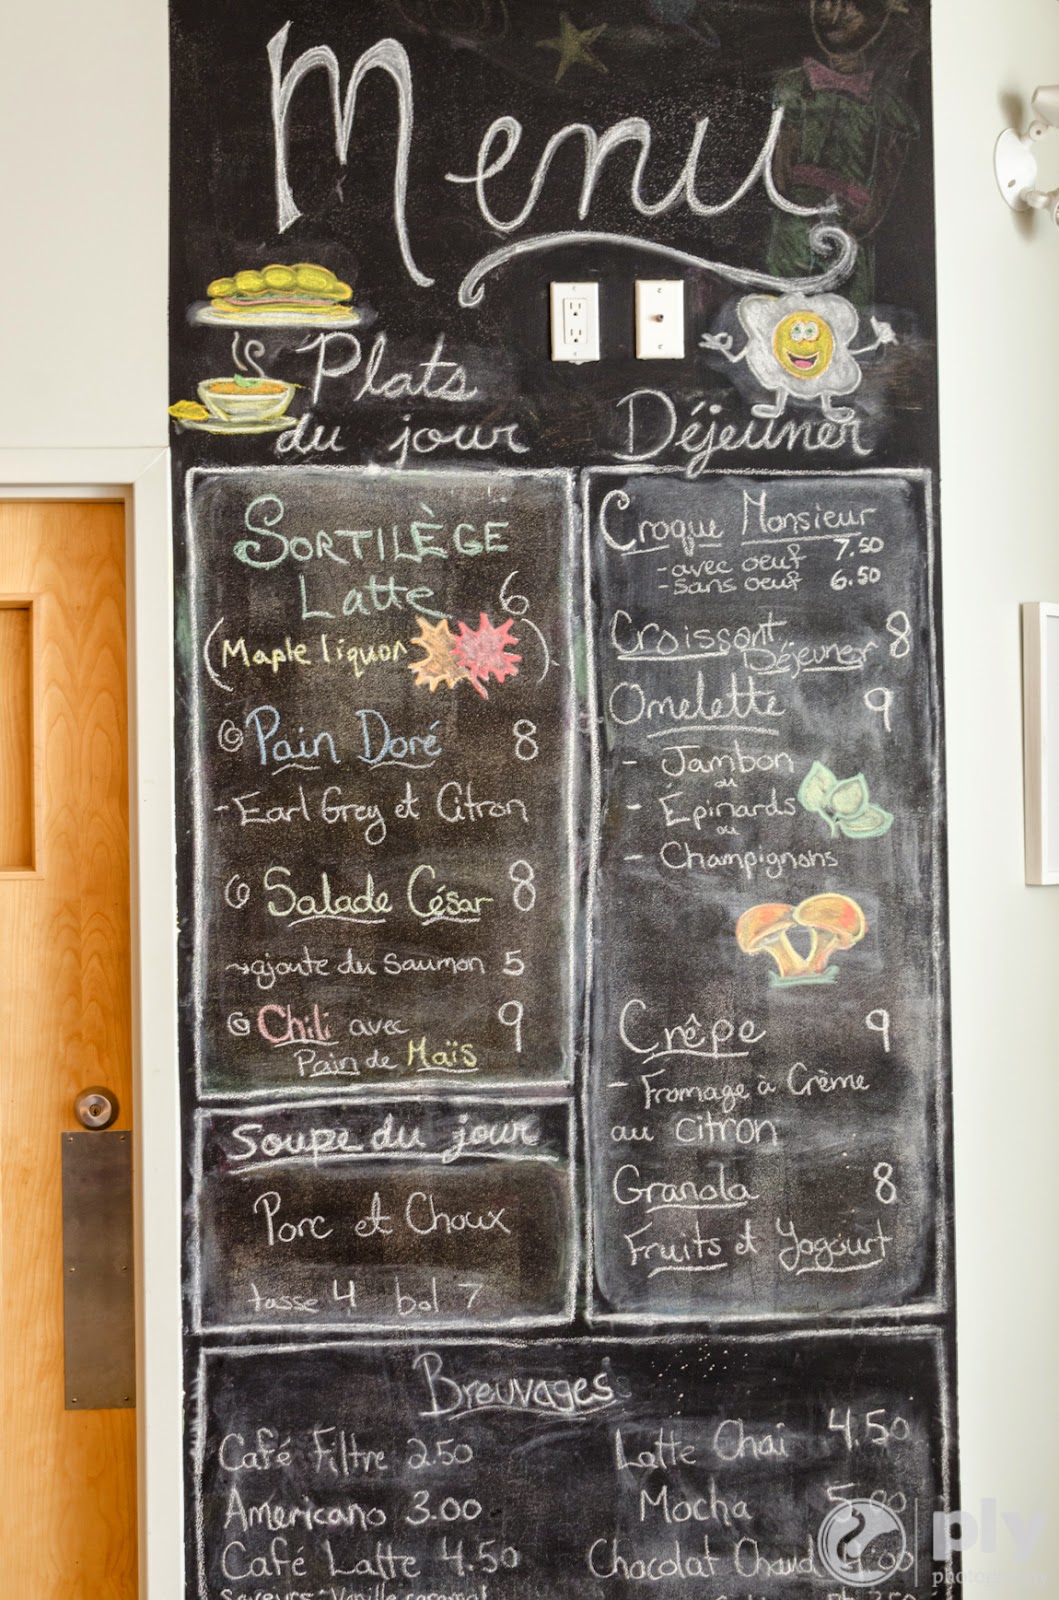 Menu
Plats
du jour
SORTILÈGE
Latte 6
(Maple liquor)
Pain Doré 8
- Earl Grey et Citron
Salade César 8
→ ajoute du saumon 5
Chili avec 9
Pain de Maïs
Soupe du jour
Porc et Choux
tasse 4 bol 7
Déjeuner
Croque Monsieur
- avec oeuf 7.50
- sans oeuf 6.50
Croissant
Déjeuner 8
Omelette 9
- Jambon
ou
- Épinards
ou
- Champignons
Crêpe 9
- Fromage à Crème
au citron
Granola 8
Fruits et Yogourt
Breuvages
Café Filtre 2.50
Americano 3.00
Café Latte 4.50
Saveurs: Vanille caramel
Latte Chai 4.50
Mocha 5.00
Chocolat Chaud 4.00
ply
photography